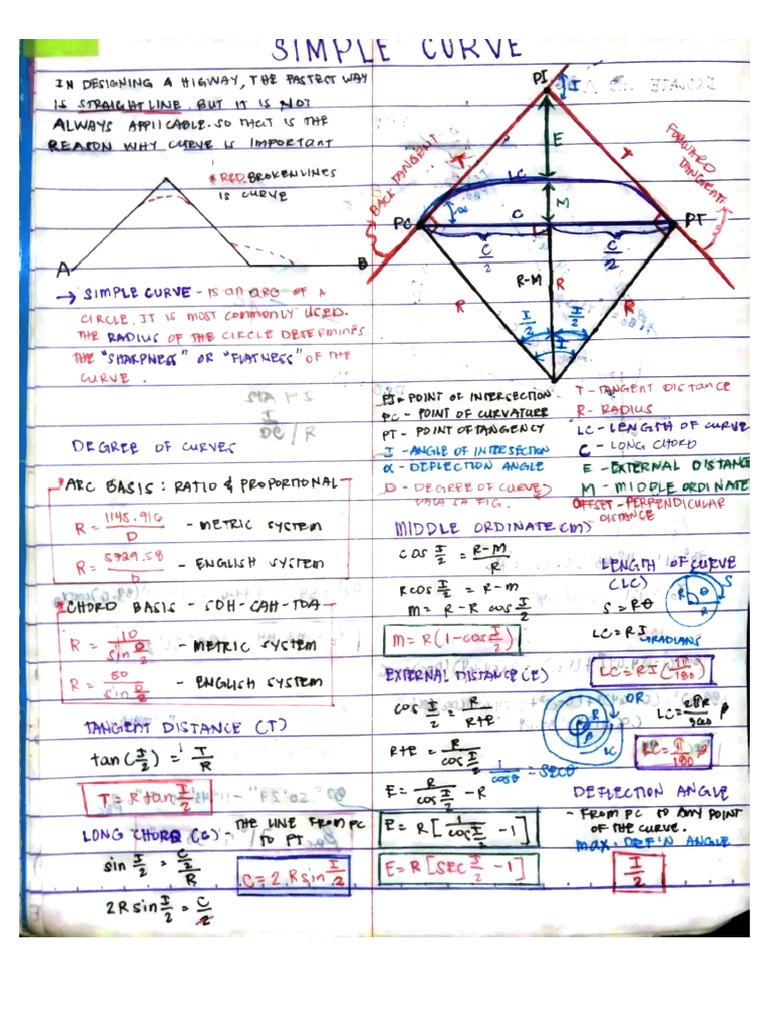 SIMPLE CURVE
IN DESIGNING A HIGWAY, THE FASTEST WAY
IS STRAIGHT LINE. BUT IT IS NOT
ALWAYS APPLICABLE. SO THAT IS THE
REASON WHY CURVE IS IMPORTANT
* RED BROKEN LINES
IS CURVE
A
B
→ SIMPLE CURVE - IS AN ARC OF A
CIRCLE. IT IS MOST COMMONLY USED.
THE RADIUS OF THE CIRCLE DETERMINES
THE "SHARPNESS" OR "FLATNESS" OF THE
CURVE.
DEGREE OF CURVES
ARC BASIS: RATIO & PROPORTIONAL
R = 1145.916/D - METRIC SYSTEM
R = 5729.58/D - ENGLISH SYSTEM
CHORD BASIS - SOH-CAH-TOA
R = 10/sin D/2 - METRIC SYSTEM
R = 50/sin D/2 - ENGLISH SYSTEM
TANGENT DISTANCE (T)
tan (I/2) = T/R
T = R tan I/2
LONG CHORD (C) - THE LINE FROM PC
TO PT
sin I/2 = C/2/R
C = 2 R sin I/2
2R sin I/2 = C/2
PI
I
E
T
T
BACK TANGENT
FORWARD
TANGENT
LC
α
M
C
PC
PT
C/2
C/2
R-M
R
R
R
I/2
I/2
I
PI - POINT OF INTERSECTION
PC - POINT OF CURVATURE
PT - POINT OF TANGENCY
I - ANGLE OF INTERSECTION
α - DEFLECTION ANGLE
D - DEGREE OF CURVE
WALA SA FIG.
T - TANGENT DISTANCE
R - RADIUS
LC - LENGTH OF CURVE
C - LONG CHORD
E - EXTERNAL DISTANCE
M - MIDDLE ORDINATE
OFFSET - PERPENDICULAR
DISTANCE
MIDDLE ORDINATE (M)
cos I/2 = R-M/R
R cos I/2 = R-m
m = R-R cos I/2
M = R(1-cos I/2)
EXTERNAL DISTANCE (E)
cos I/2 = R/R+E
R+E = R/cos I/2
1/cosθ = SECθ
E = R/cos I/2 - R
E = R[1/cos I/2 - 1]
E = R[SEC I/2 - 1]
LENGTH OF CURVE
(LC)
R
θ
S
R
S = Rθ
LC = RI RADIANS
LC = RI(π/180)
OR
R
β
LC
LC = 2πR/360 β
DEFLECTION ANGLE
- FROM PC TO ANY POINT
OF THE CURVE.
max. DEF'N ANGLE
I/2